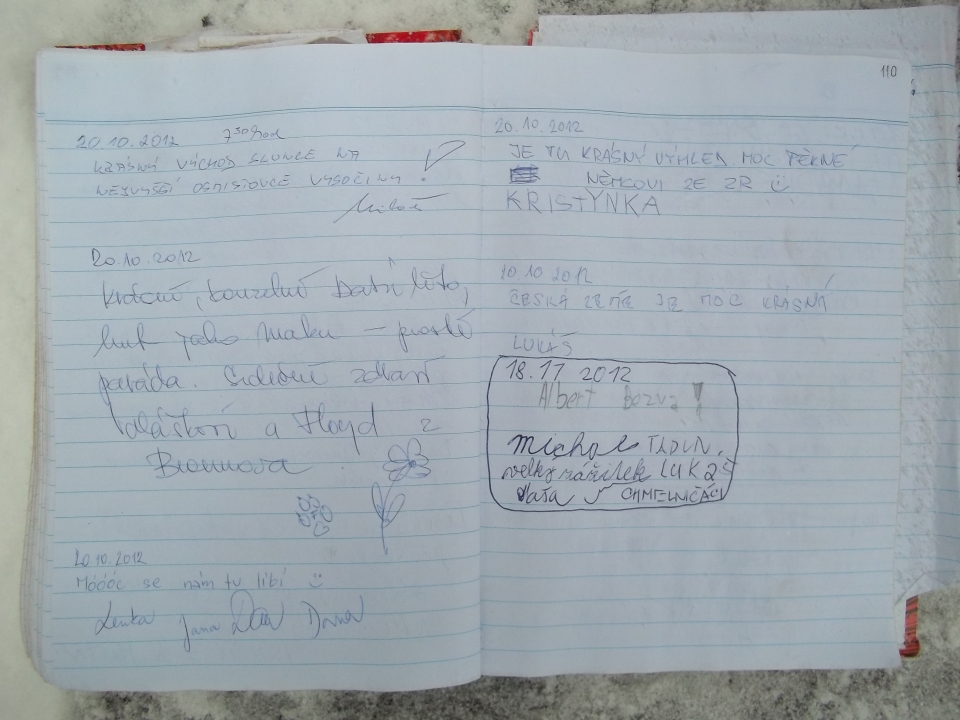 20.10.2012 7³⁰ hod
KRÁSNÝ VÝCHOD SLUNCE NA
NEJVYŠŠÍ OSMISTOVCE VYSOČINY !
Miloš
20.10.2012
Krásné, kouzelné babí léto,
lidí jako máku – prostě
paráda. Srdečně zdraví
a Floyd z
Brna
20.10.2012
Móóóc se nám tu líbí
Lenka Jana
110
20.10.2012
JE TU KRÁSNÝ VÝHLED MOC PĚKNÉ
NĚMCOVI ZE ZR
KRISTÝNKA
10.10 2012
ČESKÁ ZEMĚ JE MOC KRÁSNÁ
LUKÁŠ
18.11 2012
Albert !
Michal
velký LUKÁŠ
CHMELNIČÁCI